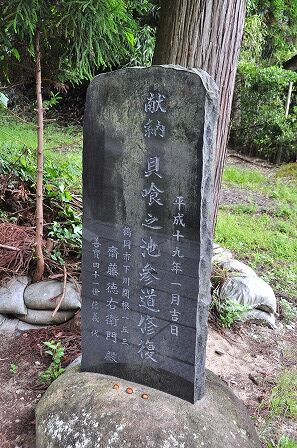 平成十九年一月吉日
献納 貝喰之池参道修復
鶴岡市下川
齋藤徳右衛門 殿